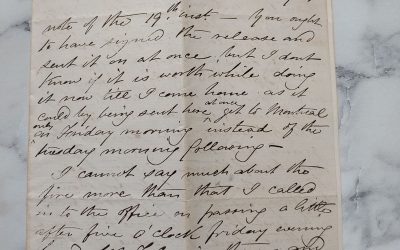 note of the 19th inst – You ought
to have signed the release and
sent it on at once, but I dont
know if it is worth while doing
it now till I come home as it
could by being sent here at once get to Montreal
only on Friday morning instead of the
tuesday morning following –
I cannot say much about the
fire more than that I called
in to the office on passing a little
after five o'clock friday evening